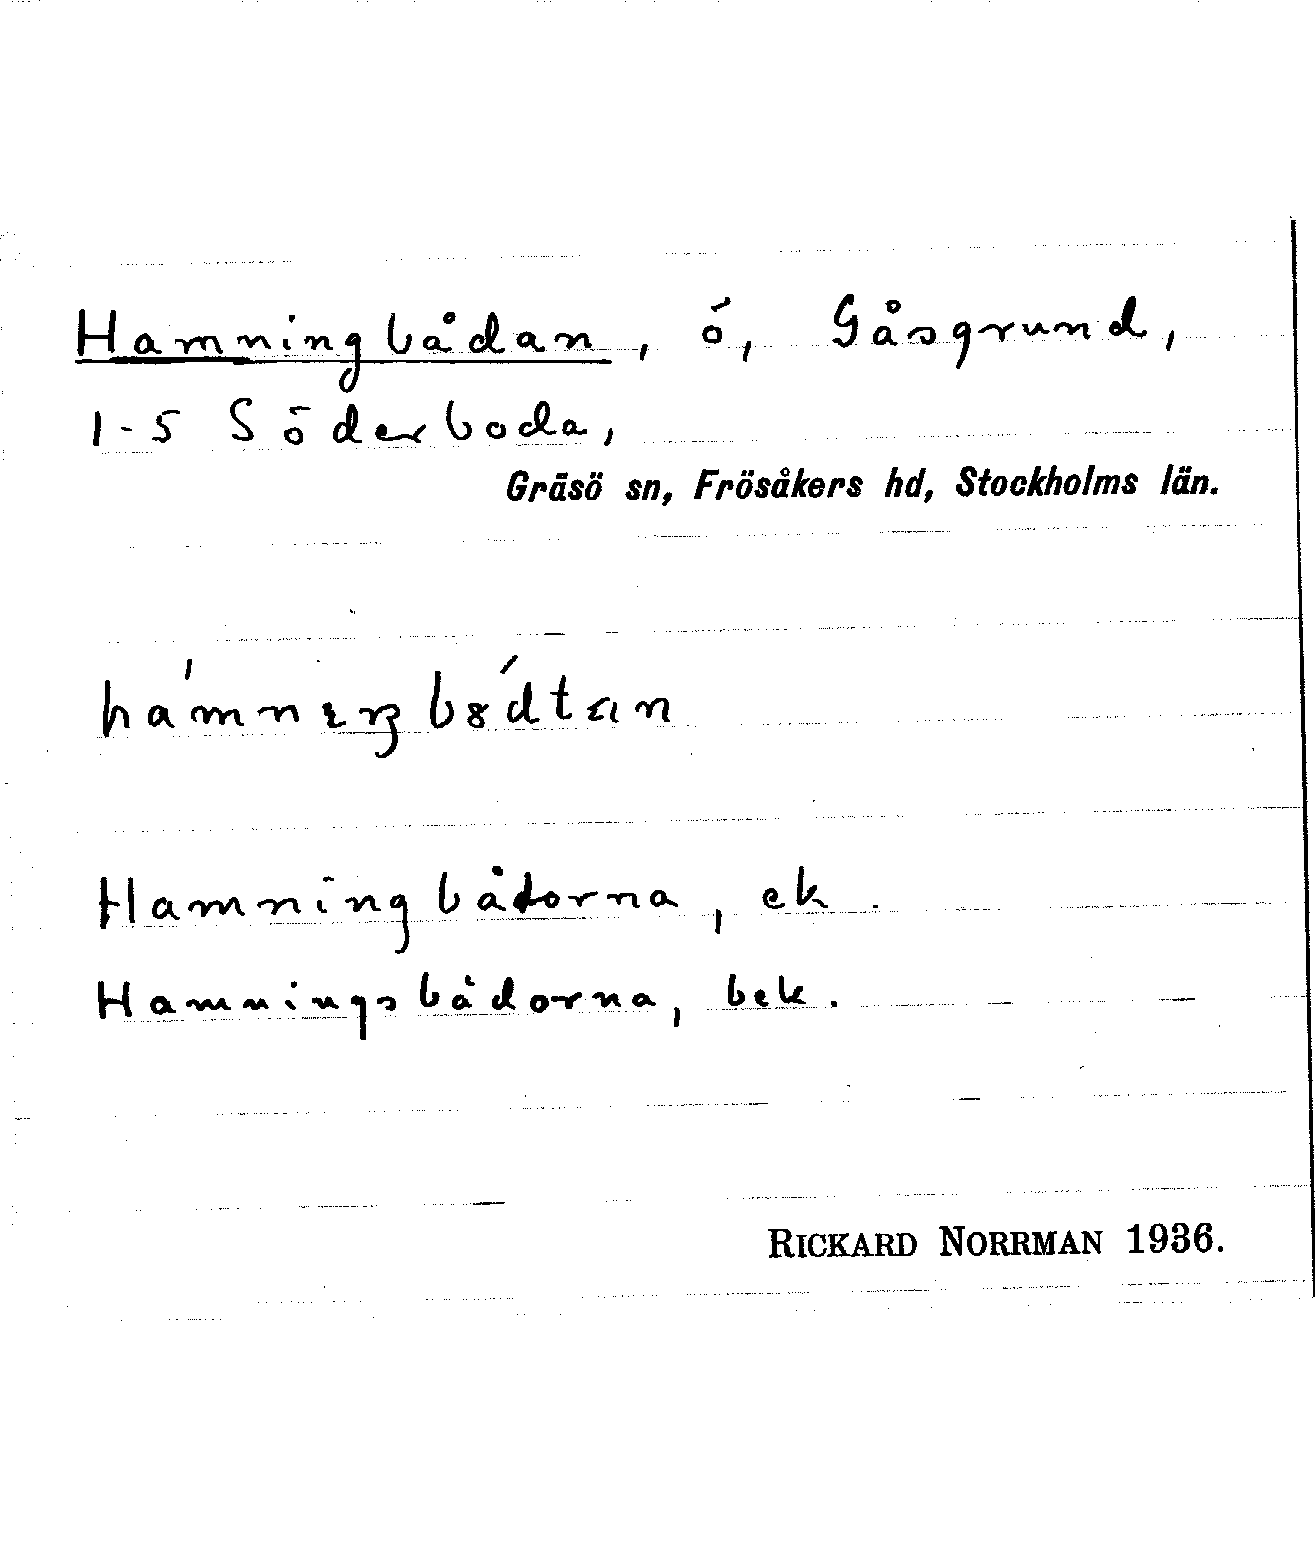 Hamningbådan, ö, Gåsgrund,
1-5 Söderboda,
Gräsö sn, Frösåkers hd, Stockholms län.
Hamningbådorna, ek.
Hamningsbådorna, bek.
RICKARD NORRMAN 1936.